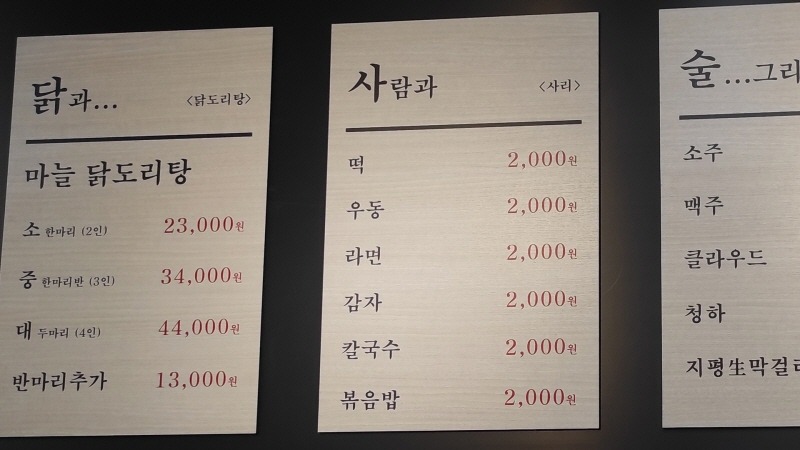 닭과... <닭도리탕>
마늘 닭도리탕
소 한마리 (2인) 23,000원
중 한마리반 (3인) 34,000원
대 두마리 (4인) 44,000원
반마리추가 13,000원
사람과 <사리>
떡 2,000원
우동 2,000원
라면 2,000원
감자 2,000원
칼국수 2,000원
볶음밥 2,000원
술...그리
소주
맥주
클라우드
청하
지평生막걸리